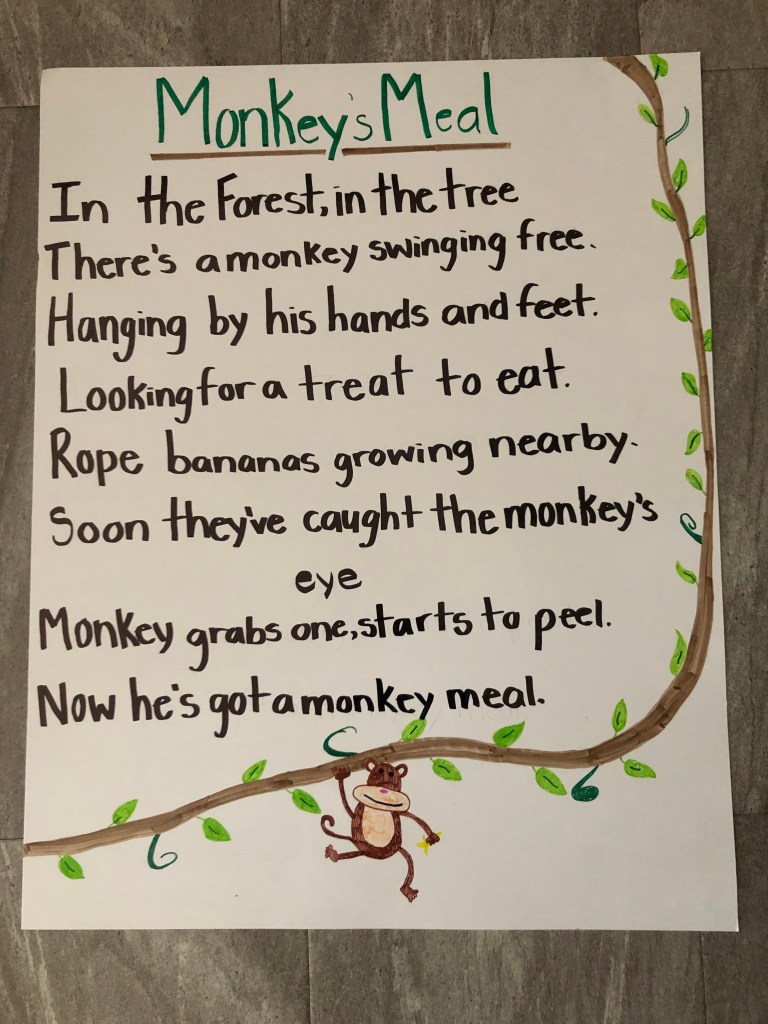 Monkey's Meal
In the Forest, in the tree
There's a monkey swinging free.
Hanging by his hands and feet.
Looking for a treat to eat.
Rope bananas growing nearby.
Soon they've caught the monkey's
eye
Monkey grabs one, starts to peel.
Now he's got a monkey meal.